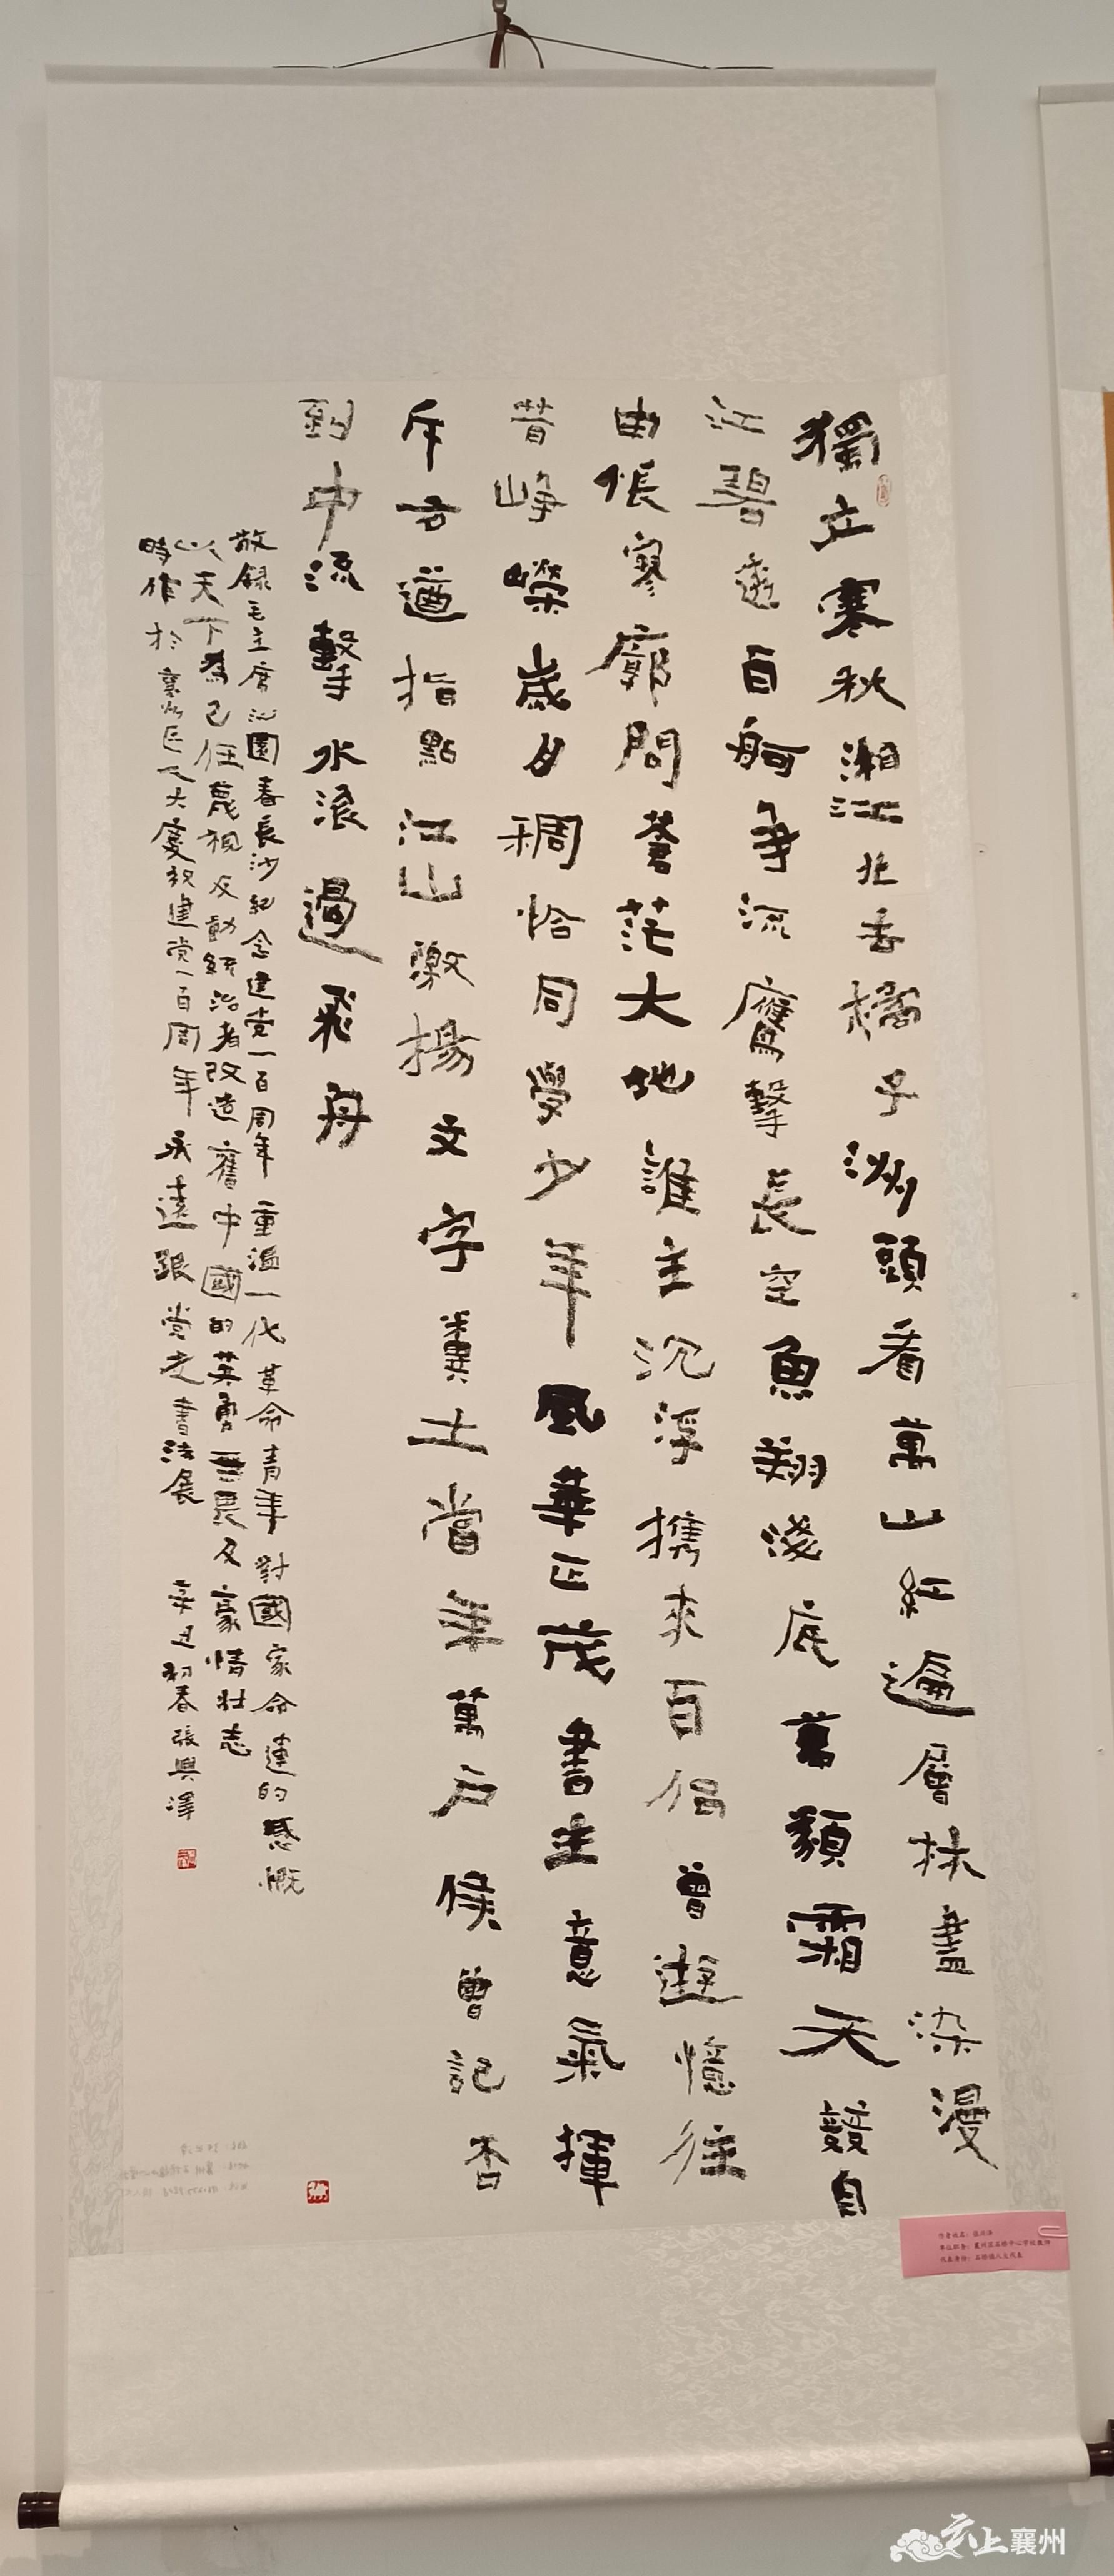 獨立寒秋湘江北去橘子洲頭看萬山紅遍層林盡染漫
江碧透百舸爭流鷹擊長空魚翔淺底萬類霜天競自
由悵寥廓問蒼茫大地誰主沉浮携來百侣曾遊憶往
昔崢嶸歲月稠恰同學少年風華正茂書生意氣揮
斥方遒指點江山激揚文字糞土當年萬户侯曾記否
到中流擊水浪遏飛舟
敬録毛主席沁園春長沙紀念建党一百周年重温一代革命青年對國家命運的感慨
以天下為己任蔑視反動統治者改造舊中國的英勇無畏及豪情壯志
時作於襄州區人大慶祝建党一百周年永遠跟党走書法展 辛丑初春張興澤
作者姓名：張兴泽
单位职务：襄州区石桥中心学校教师
代表身份：石桥镇人大代表
云上襄州